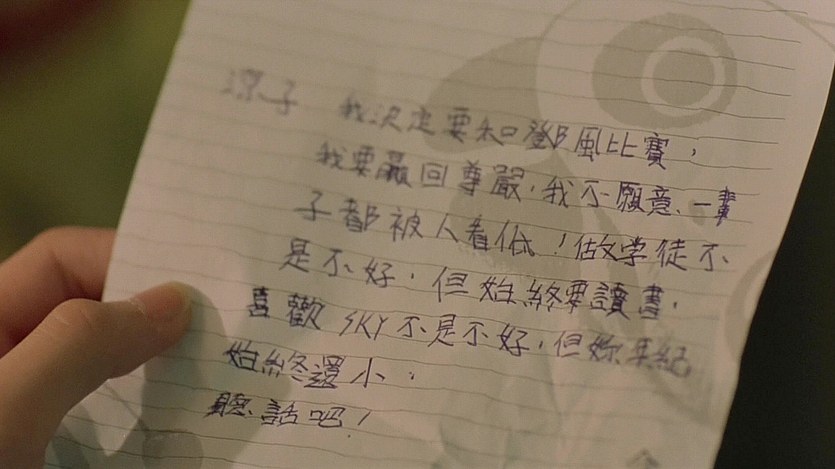 潔子 我決定要和鄧風比賽，
我要贏回尊嚴，我不願意一輩
子都被人看低！做学徒不
是不好，但始終要讀書，
喜歡SKY不是不好，但妳年紀
始終還小，
聽話吧！